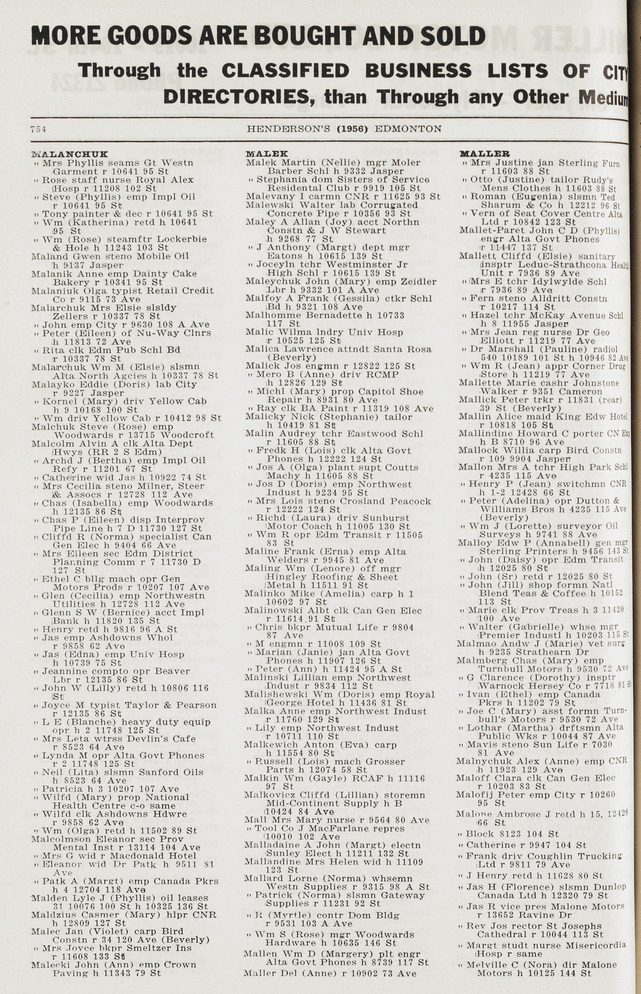 MORE GOODS ARE BOUGHT AND SOLD
Through the CLASSIFIED BUSINESS LISTS OF CITY
DIRECTORIES, than Through any Other Medium
754
HENDERSON'S (1956) EDMONTON
MALANCHUK
" Mrs Phyllis seams Gt Westn
Garment r 10641 95 St
" Rose staff nurse Royal Alex
Hosp r 11208 102 St
" Steve (Phyllis) emp Impl Oil
r 10641 95 St
" Tony painter & dec r 10641 95 St
" Wm (Katherina) retd h 10641
95 St
" Wm (Rose) steamftr Lockerbie
& Hole h 11243 103 St
Maland Gwen steno Mobile Oil
h 9137 Jasper
Malanik Anne emp Dainty Cake
Bakery r 10341 95 St
Malaniuk Olga typist Retail Credit
Co r 9115 73 Ave
Malarchuk Mrs Elsie slsldy
Zellers r 10337 78 St
" John emp City r 9630 108 A Ave
" Peter (Eileen) of Nu-Way Clnrs
h 11813 72 Ave
" Rita clk Edm Pub Schl Bd
r 10337 78 St
Malarchuk Wm M (Elsie) slsmn
Alta North Agcies h 10337 78 St
Malayko Eddie (Doris) lab City
r 9227 Jasper
" Kornel (Mary) driv Yellow Cab
h 9 10168 100 St
" Wm driv Yellow Cab r 10412 98 St
Malchuk Steve (Rose) emp
Woodwards r 13715 Woodcroft
Malcolm Alvin A clk Alta Dept
Hwys (RR 2 S Edm)
" Archd J (Bertha) emp Impl Oil
Refy r 11201 67 St
" Catherine wid Jas h 10922 74 St
" Mrs Cecilia steno Milner, Steer
& Assocs r 12728 112 Ave
" Chas (Isabella) emp Woodwards
h 12135 86 St
" Chas P (Eileen) disp Interprov
Pipe Line h 7 D 11730 127 St
" Cliffd R (Norma) specialist Can
Gen Elec h 9404 66 Ave
" Mrs Eileen sec Edm District
Planning Comm r 7 11730 D
127 St
" Ethel C bllg mach opr Gen
Motors Prods r 10207 107 Ave
" Glen (Cecilia) emp Northwestn
Utilities h 12728 112 Ave
" Glenn S W (Bernice) acct Impl
Bank h 11820 135 St
" Henry retd h 9816 96 A St
" Jas emp Ashdowns Whol
r 9858 62 Ave
" Jas (Edna) emp Univ Hosp
h 10739 75 St
" Jeannine compto opr Beaver
Lbr r 12135 86 St
" John W (Lilly) retd h 10806 116
St
" Joyce M typist Taylor & Pearson
r 12135 86 St
" L E (Blanche) heavy duty equip
opr h 2 11748 125 St
" Mrs Leta wtrss Devlin's Cafe
r 8523 64 Ave
" Lynda M opr Alta Govt Phones
r 2 11748 125 St
" Neil (Lita) slsmn Sanford Oils
h 8523 64 Ave
" Patricia h 3 10207 107 Ave
" Wilfd (Mary) prop National
Health Centre c-o same
" Wilfd clk Ashdowns Hdwre
r 9858 62 Ave
" Wm (Olga) retd h 11502 89 St
Malcolmson Eleanor sec Prov
Mental Inst r 13114 104 Ave
" Mrs G wid r Macdonald Hotel
" Eleanor wid Dr Patk h 9511 81
Ave
" Patk A (Margt) emp Canada Pkrs
h 4 12704 118 Ave
Malden Lyle J (Phyllis) oil leases
31 10076 100 St h 10325 136 St
Maldzius Casmer (Mary) hlpr CNR
h 12809 127 St
Malec Jan (Violet) carp Bird
Constn r 34 120 Ave (Beverly)
" Mrs Joyce bkpr Smeltzer Ins
r 11608 133 St
Malecki John (Ann) emp Crown
Paving h 11343 79 St
MALEK
Malek Martin (Nellie) mgr Moler
Barber Schl h 9332 Jasper
" Stephania dom Sisters of Service
Residental Club r 9919 105 St
Malevany I carmn CNR r 11625 93 St
Malewski Walter lab Corrugated
Concrete Pipe r 10356 93 St
Maley A Allan (Joy) acct Northn
Constn & J W Stewart
h 9268 77 St
" J Anthony (Margt) dept mgr
Eatons h 10615 139 St
" Joceyln tchr Westminster Jr
High Schl r 10615 139 St
Maleychuk John (Mary) emp Zeidler
Lbr h 9332 101 A Ave
Malfoy A Frank (Gessila) ctkr Schl
Bd h 9321 108 Ave
Malhomme Bernadette h 10733
117 St
Malic Wilma lndry Univ Hosp
r 10525 125 St
Malica Lawrence attndt Santa Rosa
(Beverly)
Malick Jos engmn r 12822 125 St
" Mero B (Anne) driv RCMP
h 12826 129 St
" Michl (Mary) prop Capitol Shoe
Repair h 8931 80 Ave
" Ray clk BA Paint r 11319 108 Ave
Malicky Nick (Stephanie) tailor
h 10419 81 St
Malin Audrey tchr Eastwood Schl
r 11605 88 St
" Fredk H (Lois) clk Alta Govt
Phones h 12222 124 St
" Jos A (Olga) plant supt Coutts
Machy h 11605 88 St
" Jos D (Doris) emp Northwest
Indust h 9234 95 St
" Mrs Lois steno Crosland Peacock
r 12222 124 St
" Richd (Laura) driv Sunburst
Motor Coach h 11005 130 St
" Wm R opr Edm Transit r 11505
83 St
Maline Frank (Erna) emp Alta
Welders r 9945 81 Ave
Maling Wm (Lenore) off mgr
Hingley Roofing & Sheet
Metal h 11511 91 St
Malinko Mike (Amelia) carp h 1
10602 97 St
Malinowski Albt clk Can Gen Elec
r 11614 91 St
" Chris bkpr Mutual Life r 9804
87 Ave
" M engmn r 11008 109 St
" Marian (Janie) jan Alta Govt
Phones h 11907 126 St
" Peter (Ann) h 11424 95 A St
Malinski Lillian emp Northwest
Indust r 9834 112 St
Malishewski Wm (Doris) emp Royal
George Hotel h 11436 81 St
Malka Anne emp Northwest Indust
r 11760 129 St
" Lily emp Northwest Indust
r 10711 110 St
Malkewich Anton (Eva) carp
h 11554 80 St
" Russell (Lois) mach Grosser
Parts h 12074 58 St
Malkin Wm (Gayle) RCAF h 11116
97 St
Malkovicz Cliffd (Lillian) storemn
Mid-Continent Supply h B
10424 84 Ave
Mall Mrs Mary nurse r 9564 80 Ave
" Tool Co J MacFarlane repres
10010 102 Ave
Malladaine A John (Margt) electn
Sunley Elect h 11211 132 St
Mallandine Mrs Helen wid h 11109
123 St
Mallard Lorne (Norma) whsemn
Westn Supplies r 9315 98 A St
" Patrick (Norma) slsmn Gateway
Supplies r 11231 92 St
" R (Myrtle) contr Dom Bldg
r 9531 103 A Ave
" Wm S (Rose) mgr Woodwards
Hardware h 10635 146 St
Mallen Wm D (Margery) plt engr
Alta Govt Phones h 8739 117 St
Maller Del (Anne) r 10902 73 Ave
MALLER
" Mrs Justine jan Sterling Furn
r 11603 88 St
" Otto (Justine) tailor Rudy's
Mens Clothes h 11603 88 St
" Roman (Eugenia) slsmn Ted
Sharum & Co h 12212 96 St
" Vern of Seat Cover Centre Alta
Ltd r 10842 123 St
Mallet-Paret John C D (Phyllis)
engr Alta Govt Phones
r 11447 137 St
Mallett Cliffd (Elsie) sanitary
insptr Leduc-Strathcona Health
Unit r 7936 89 Ave
" Mrs E tchr Idylwylde Schl
r 7936 89 Ave
" Fern steno Alldritt Constn
r 10217 114 St
" Hazel tchr McKay Avenue Schl
h 8 11955 Jasper
" Mrs Jean reg nurse Dr Geo
Elliott r 11219 77 Ave
" Dr Marshall (Pauline) radiol
540 10189 101 St h 10946 82 Ave
" Wm R (Jean) appr Corner Drug
Store h 11219 77 Ave
Mallette Marie cashr Johnstone
Walker r 9351 Cameron
Mallick Peter trkr r 11831 (rear)
39 St (Beverly)
Mallin Alice maid King Edw Hotel
r 10818 105 St
Mallindine Howard C porter CN Exp
h B 8710 96 Ave
Mallock Willia carp Bird Constn
r 109 9904 Jasper
Mallon Mrs A tchr High Park Schl
r 4235 115 Ave
" Henry P (Jean) switchmn CNR
h 1-2 12428 66 St
" Peter (Adelina) opr Dutton &
Williams Bros h 4235 115 Ave
(Beverly)
" Wm J (Lorette) surveyor Oil
Surveys h 9741 88 Ave
Malloy Edw P (Annabell) gen mgr
Sterling Printers h 9456 143 St
" John (Daisy) opr Edm Transit
h 12025 80 St
" John (Sr) retd r 12025 80 St
" John (Jill) shop formn Nall
Blend Teas & Coffee h 10152
113 St
" Marie clk Prov Treas h 3 11420
100 Ave
" Walter (Gabrielle) whse mgr
Premier Industl h 10203 115 St
Malmao Andw J (Marie) vet surg
h 9235 Strathearn Dr
Malmberg Chas (Mary) emp
Turnbull Motors h 9530 72 Ave
" G Clarice (Dorothy) insptr
Warnock Hersey Co r 7718 81 St
" Ivan (Ethel) emp Canada
Pkrs h 11202 79 St
" Joe C (Mary) asst formn Turn-
bull's Motors r 9530 72 Ave
" Lothar (Martha) drftsmn Alta
Public Wks r 10044 87 Ave
" Mavis steno Sun Life r 7030
81 Ave
Malnychuk Alex (Anne) emp CNR
h 11923 129 Ave
Maloff Clara clk Can Gen Elec
r 10203 83 St
Malofij Peter emp City r 10260
95 St
Malone Ambrose J retd h 15, 12428
66 St
" Block 8123 104 St
" Catherine r 9947 104 St
" Frank driv Coughlin Trucking
Ltd r 9811 79 Ave
" J Henry retd h 11628 80 St
" Jas H (Florence) slsmn Dunlop
Canada Ltd h 12320 79 St
" Jas R vice pres Malone Motors
r 13652 Ravine Dr
" Rev Jos rector St Josephs
Cathedral r 10044 113 St
" Margt studt nurse Misericordia
Hosp r same
" Melville C (Nora) dir Malone
Motors h 10125 144 St